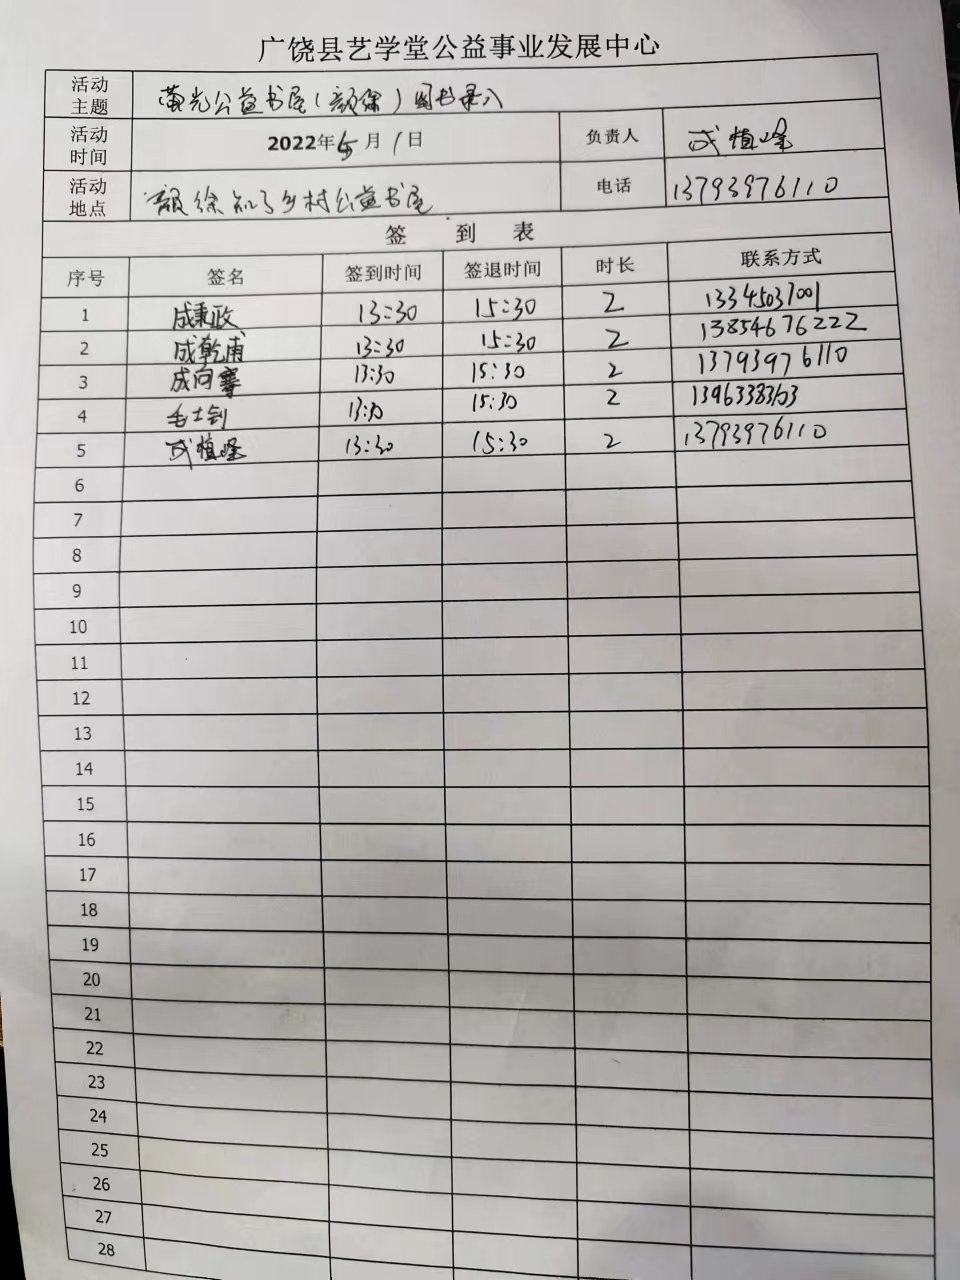 广饶县艺学堂公益事业发展中心
活动主题 萤光公益书屋(颜徐)图书录入
活动时间 2022年5月1日 负责人 成植峰
活动地点 颜徐知了乡村公益书屋 电话 13793976110
签 到 表
序号 签名 签到时间 签退时间 时长 联系方式
1 成秉政 13:30 15:30 2 13345031001
2 成乾甫 13:30 15:30 2 13854676222
3 成向 13:30 15:30 2 13793976110
4 毛士钊 13:30 15:30 2
5 成植峰 13:30 15:30 2 13793976110
6
7
8
9
10
11
12
13
14
15
16
17
18
19
20
21
22
23
24
25
26
27
28